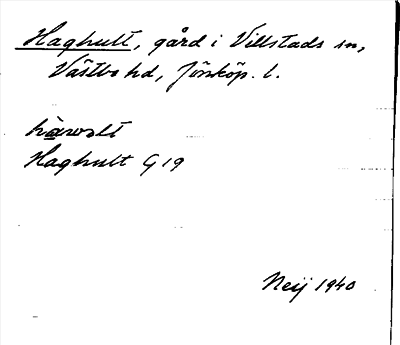 Haghult, gård i Villstads sn,
Västbo hd, Jönköp. l.
hàwɔlt
Haghult G 19
Neij 1940